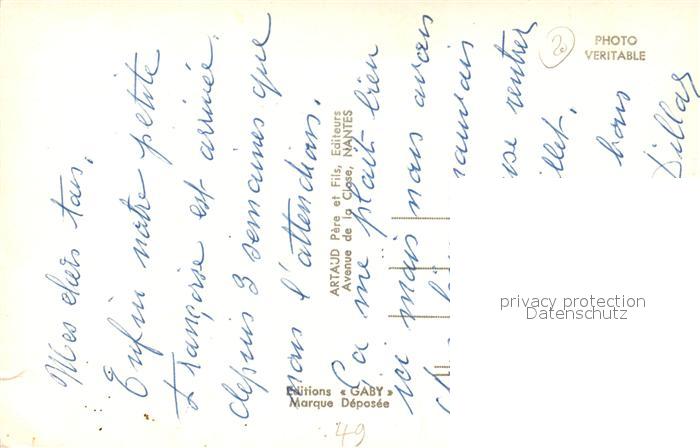 Mes chers tous,
Enfin notre petite
Françoise est arrivée,
depuis 3 semaines que
nous l'attendions.
Ça me plaît bien
ici mais nous avons
mauvais
rentrer
bons
PHOTO
VERITABLE
ARTAUD Père et Fils, Editeurs
Avenue de la Close, NANTES
Editions « GABY »
Marque Déposée
49
privacy protection
Datenschutz